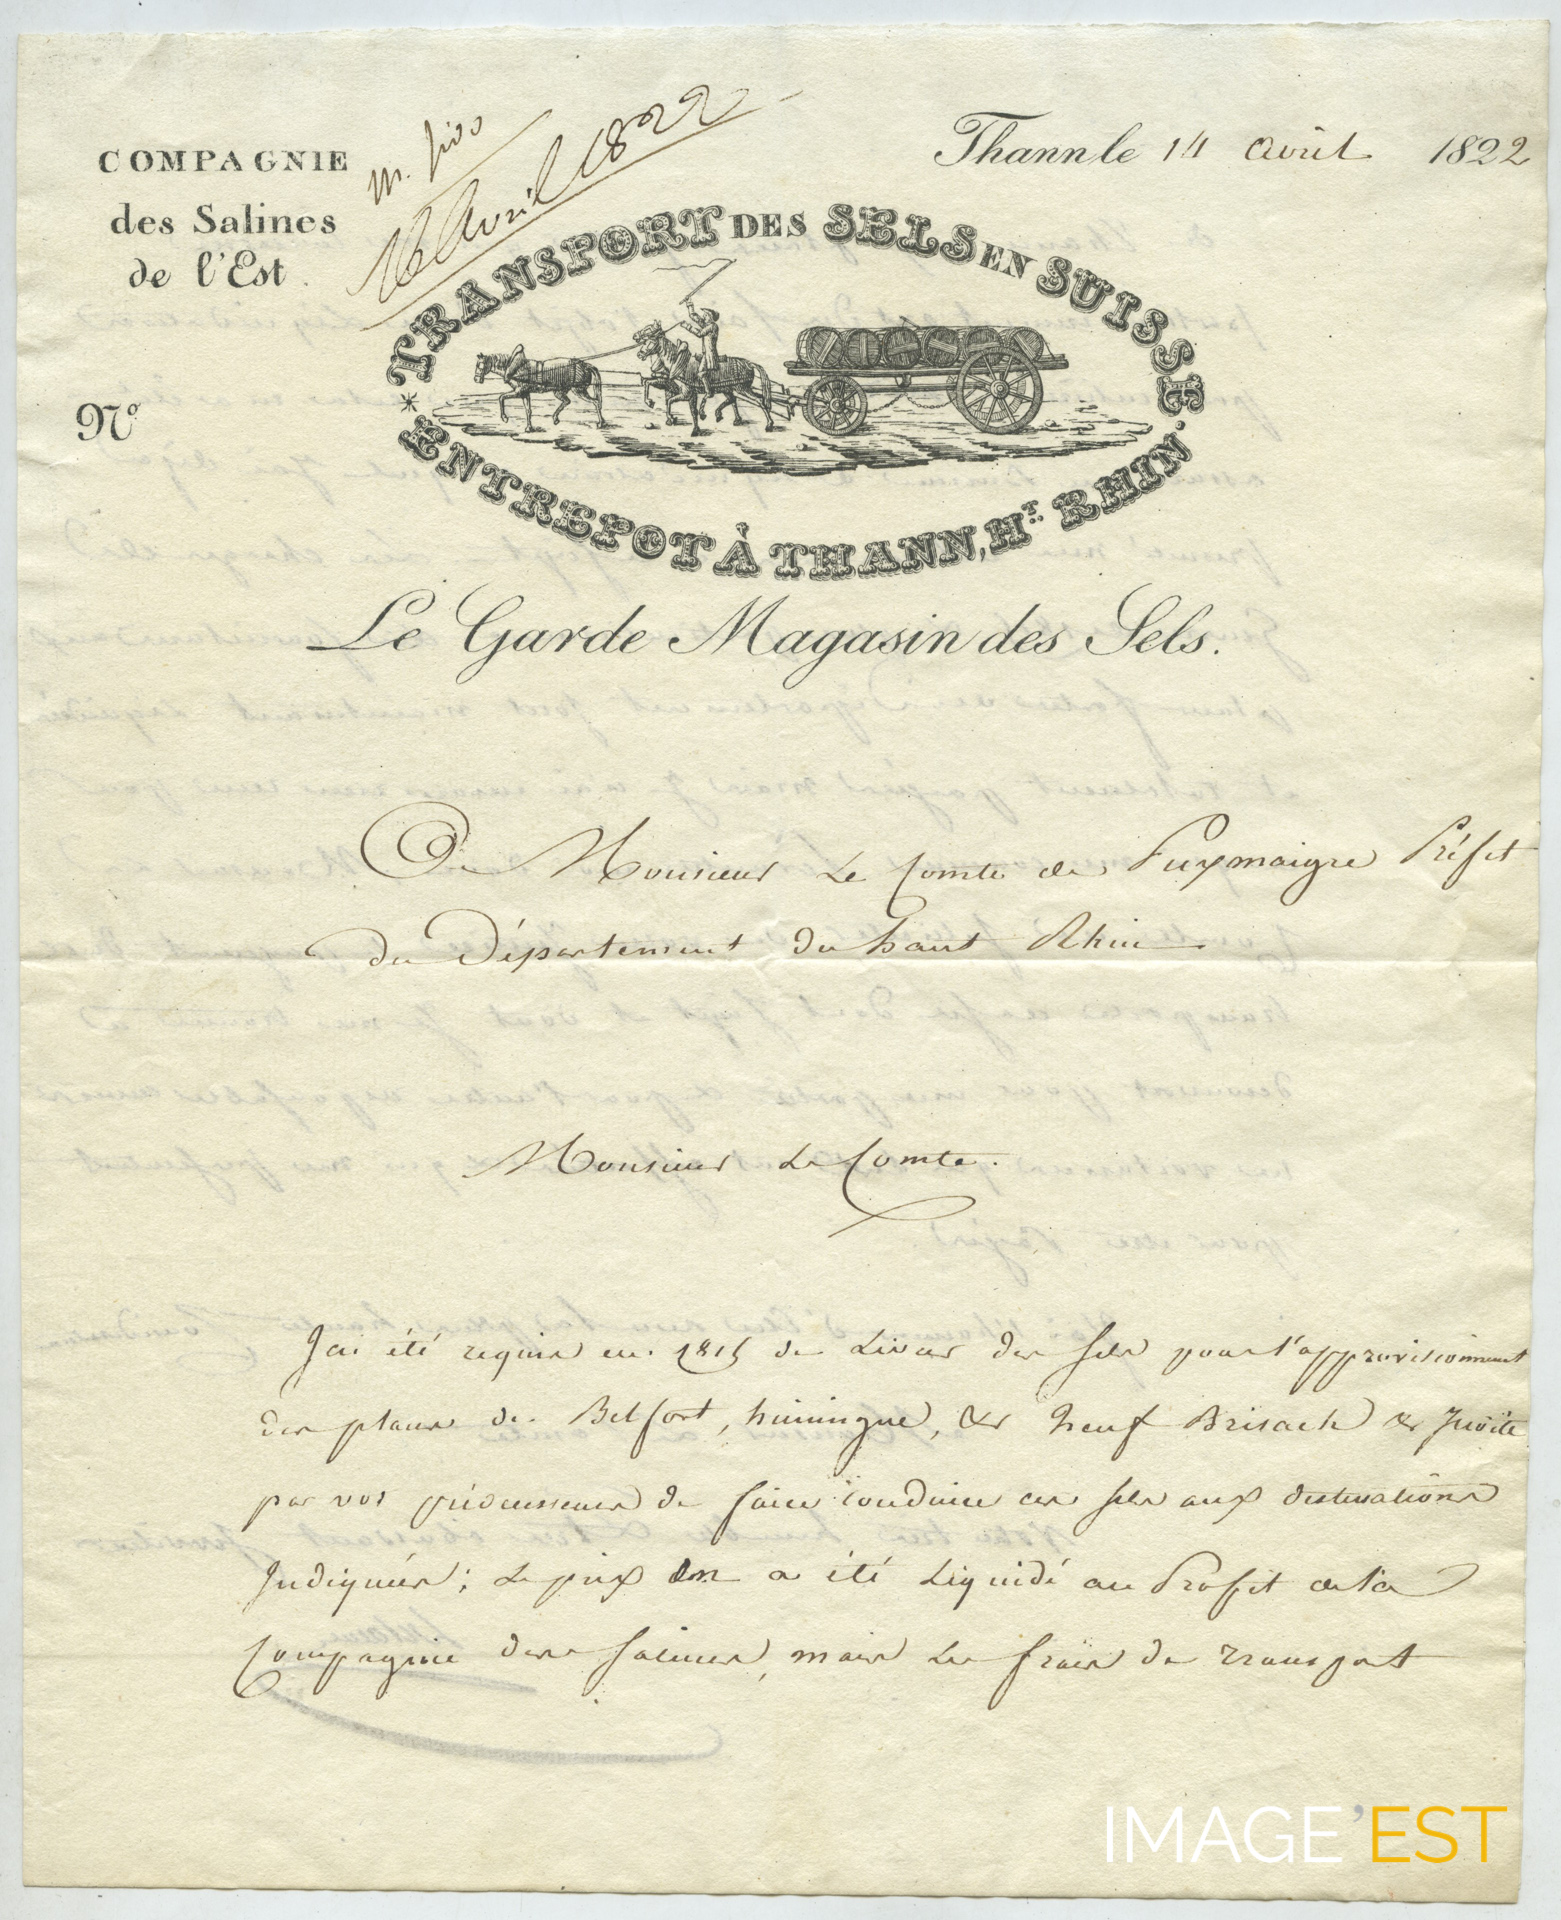 COMPAGNIE
des Salines
de l'Est.
N°
16 Avril 1822
Thann le 14 avril 1822
TRANSPORT DES SELS EN SUISSE
* ENTREPOT À THANN, HT. RHIN.
Le Garde Magasin des Sels.
A Monsieur Le Comte de Puymaigre Préfet
du Département du haut Rhin
Monsieur Le Comte.
J'ai été requis en 1815 de Livrer des sels pour l'approvisionnement
des places de Belfort, huningue, & neuf Brisach & Invité
par vos prédécesseurs de faire conduire ces sels aux destinations
Indiquées; Le prix en a été Liquidé au Profit de la
Compagnie des salines, mais Les frais de transport
IMAGE'EST